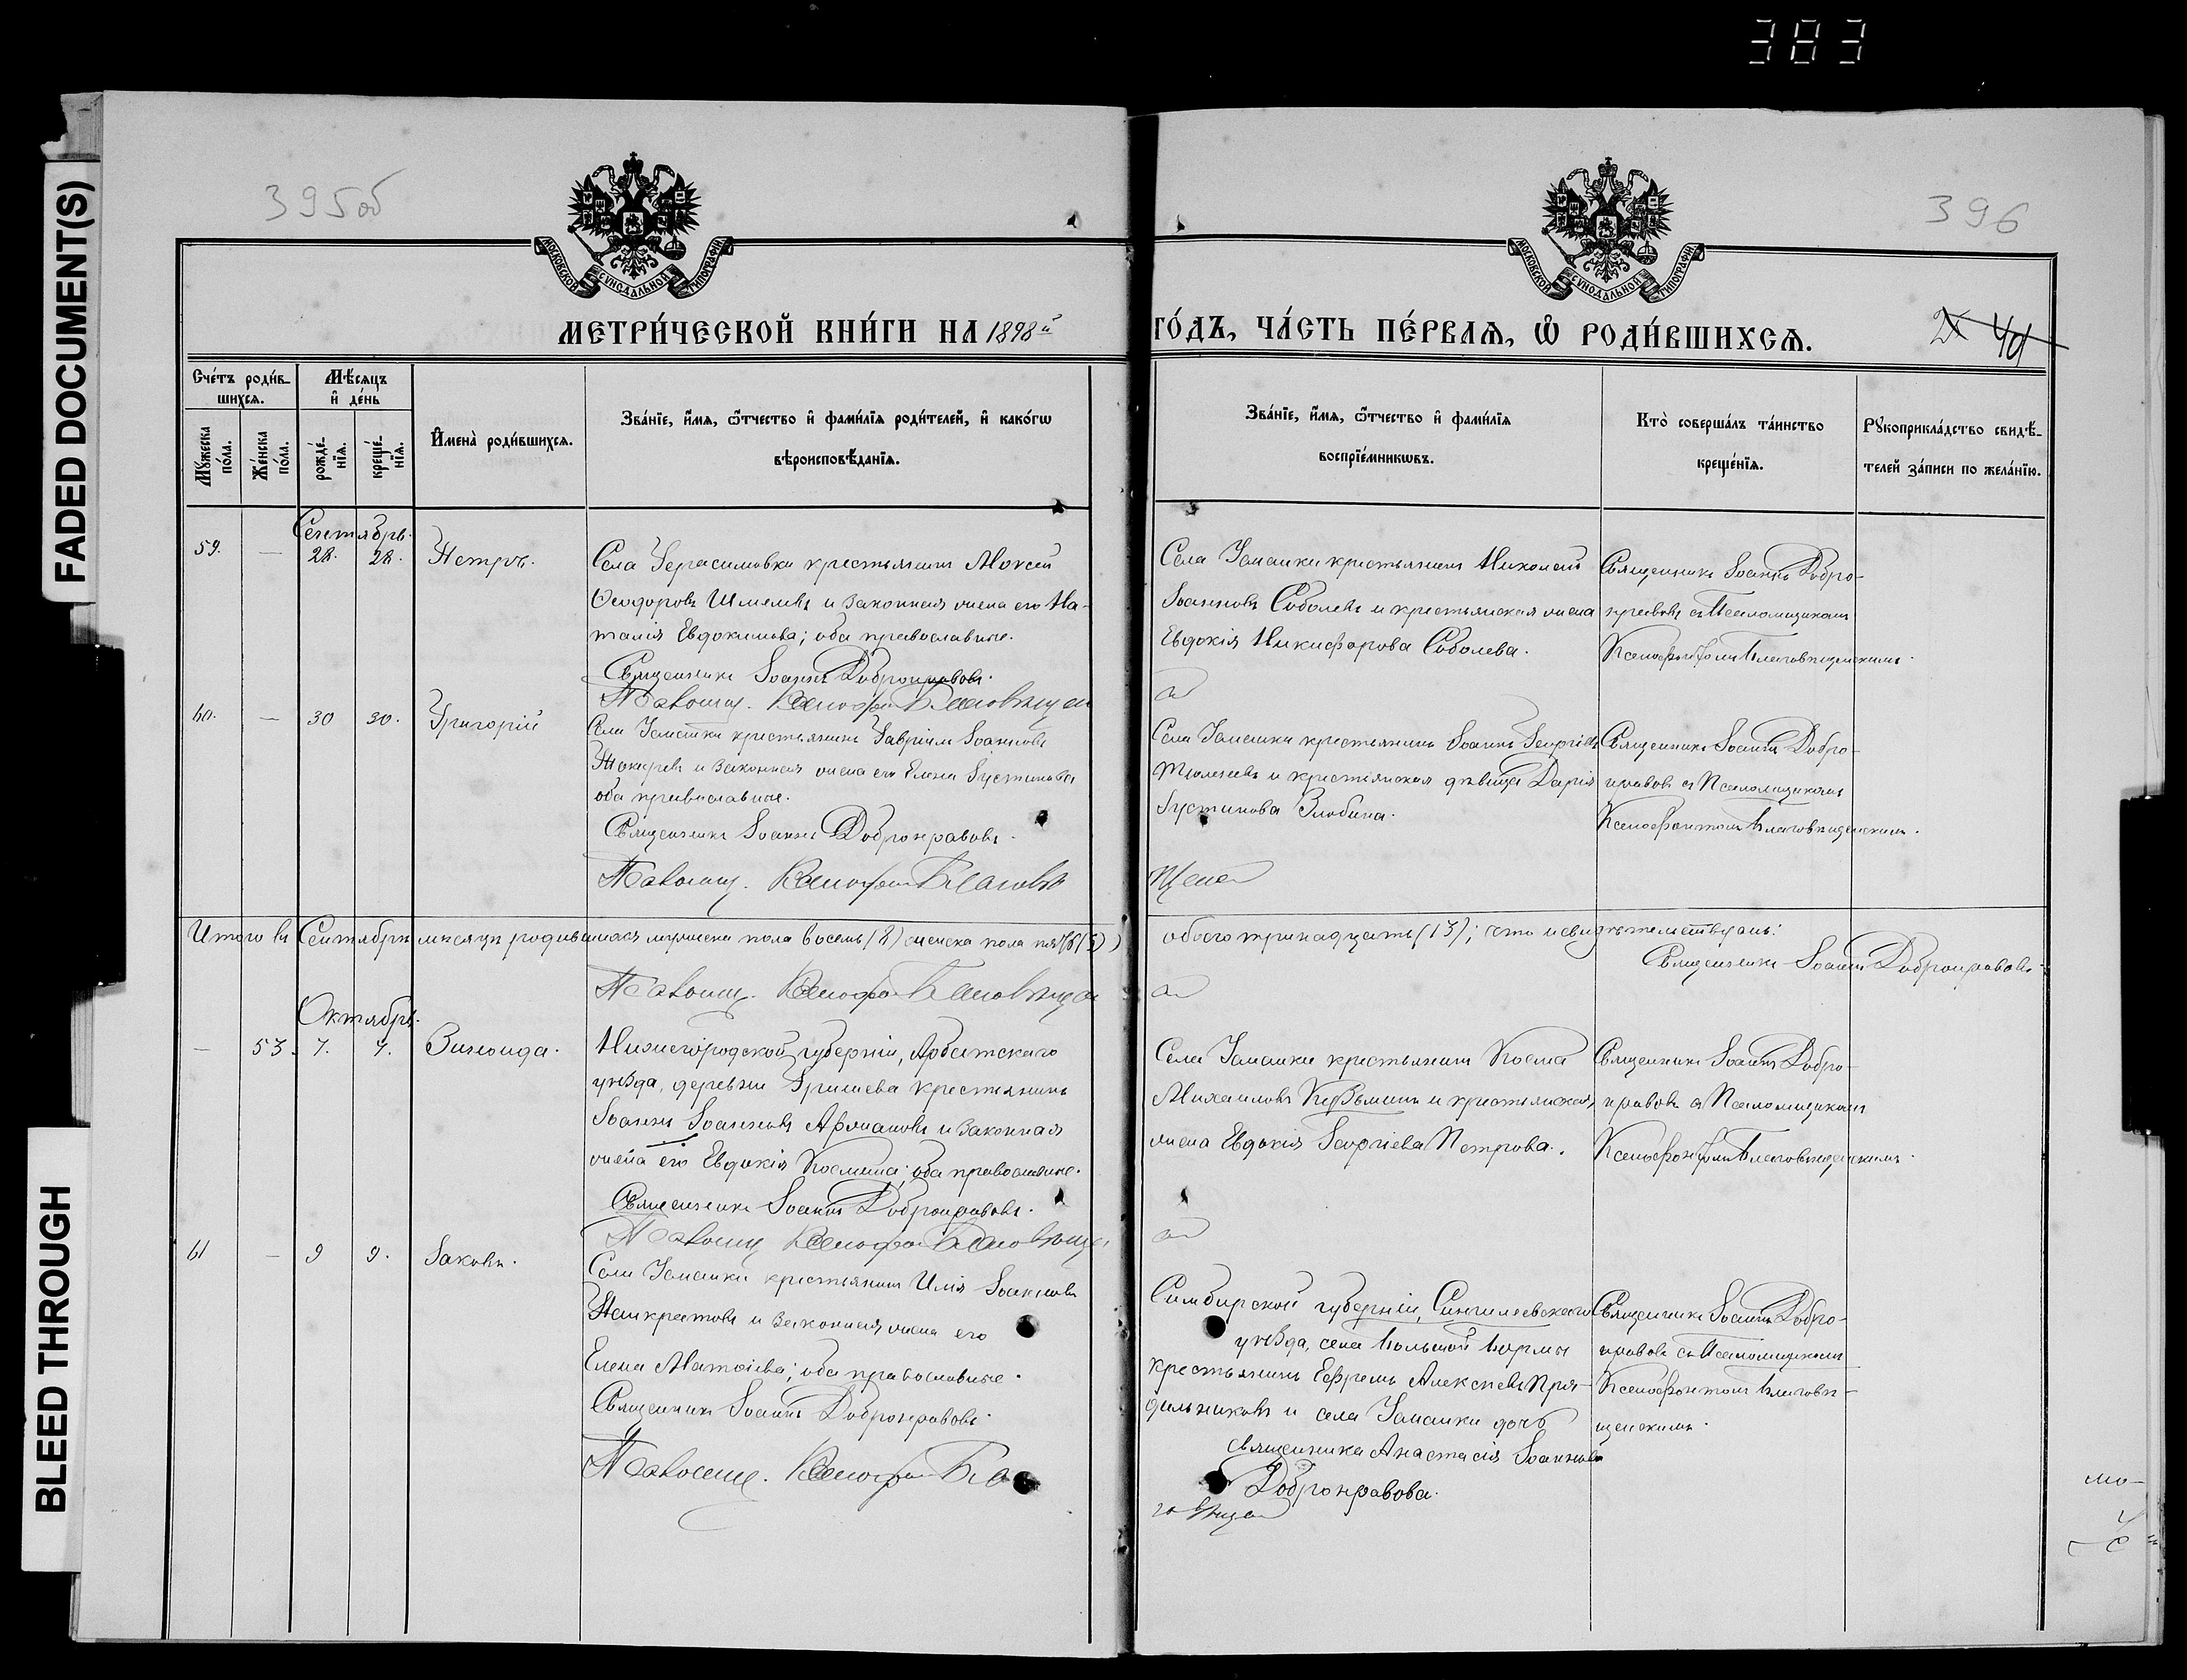 383
FADED DOCUMENT(S)
BLEED THROUGH
395об
396
МОСКОВСКОЙ СѴНОДАЛЬНОЙ ТИПОГРАФІИ
МОСКОВСКОЙ СѴНОДАЛЬНОЙ ТИПОГРАФІИ
МЕТРИ́ЧЕСКОЙ КНИ́ГИ НА 1898й
ГО́ДЪ, ЧА́СТЬ ПЕ́РВАѦ, Ѡ҆ РОДИ́ВШИХСѦ.
Сче́тъ роди́в-
шихсѧ.
Мꙋ́жеска
по́ла.
Же́нска
по́ла.
Мѣ́сѧцъ
и҆ де́нь
рожде́-
нїѧ.
креще́-
нїѧ.
И҆мена̀ роди́вшихсѧ.
Зва́нїе, и҆́мѧ, ѻ҆́тчество и҆ фами́лїѧ роди́телей, и҆ како́гѡ
вѣроисповѣ́данїѧ.
Зва́нїе, и҆́мѧ, ѻ҆́тчество и҆ фами́лїѧ
воспрїе́мникѡвъ.
Кто̀ соверша́лъ та́инство
креще́нїѧ.
Рꙋкоприкла́дство свидѣ́-
телей за́писи по жела́нїю.
Сентябрь.
59. — 28. 28. Петръ.
Села Герасимовки крестьянинъ Алексей
Ѳеодоровъ Шмелевъ и законная жена его На-
талія Евдокимова; оба православные.
Священникъ Іоаннъ Добронравовъ.
Псаломщ. Ксенофон Благовѣщен
Села Ямашки крестьянинъ Николай
Іоанновъ Соболевъ и крестьянская жена
Евдокія Никифорова Соболева.
Священникъ Іоаннъ Добро-
нравовъ съ Псаломщикомъ
Ксенофонтомъ Благовѣщенскимъ.
60. — 30 30. Григорій
Села Ямашки крестьянинъ Гавріилъ Іоанновъ
Токаревъ и законная жена его Елена Іустинова
оба православные.
Священникъ Іоаннъ Добронравовъ.
Псаломщ. Ксенофон Благовѣ
щен
Села Ямашки крестьянинъ Іоаннъ Георгіевъ
и крестьянская дѣвица Дарія
Іустинова Злобина.
Священникъ Іоаннъ Добро-
нравовъ съ Псаломщикомъ
Ксенофонтомъ Благовѣщенскимъ.
Итого въ Сентябрѣ мѣсяцѣ родившихся мужеска пола восемь (8) женска пола пять (5)
обоего тринадцать (13); что и свидѣтельствуемъ:
Священникъ Іоаннъ Добронравовъ.
Псаломщ. Ксенофон Благовѣщен
Октябрь.
— 53. 7. 7. Зинаида.
Нижегородской губерніи, Ардатскаго
уѣзда, деревни Гришева крестьянинъ
Іоаннъ Іоанновъ и законная
жена его Евдокія Космина; оба православные.
Священникъ Іоаннъ Добронравовъ.
Псаломщ. Ксенофон Благовѣщен
Села Ямашки крестьянинъ Косма
Михаиловъ Кузьминъ и крестьянская
жена Евдокія Георгіева Петрова.
Священникъ Іоаннъ Добро-
нравовъ съ Псаломщикомъ
Ксенофонтомъ Благовѣщенскимъ.
61 — 9 9. Іаковъ.
Села Ямашки крестьянинъ Илія Іоанновъ
Панкратовъ и законная жена его
Елена Матѳіева; оба православные.
Священникъ Іоаннъ Добронравовъ.
Псаломщ. Ксенофон Бла
говѣщен
Симбирской губерніи, Сингилеевскаго
уѣзда, села Большой Борлы
крестьянинъ Ефремъ Алексѣевъ Пря-
дильниковъ и села Ямашки дочь
священника Анастасія Іоаннова
Добронравова.
Священникъ Іоаннъ Добро-
нравовъ съ Псаломщикомъ
Ксенофонтомъ Благовѣ-
щенскимъ.